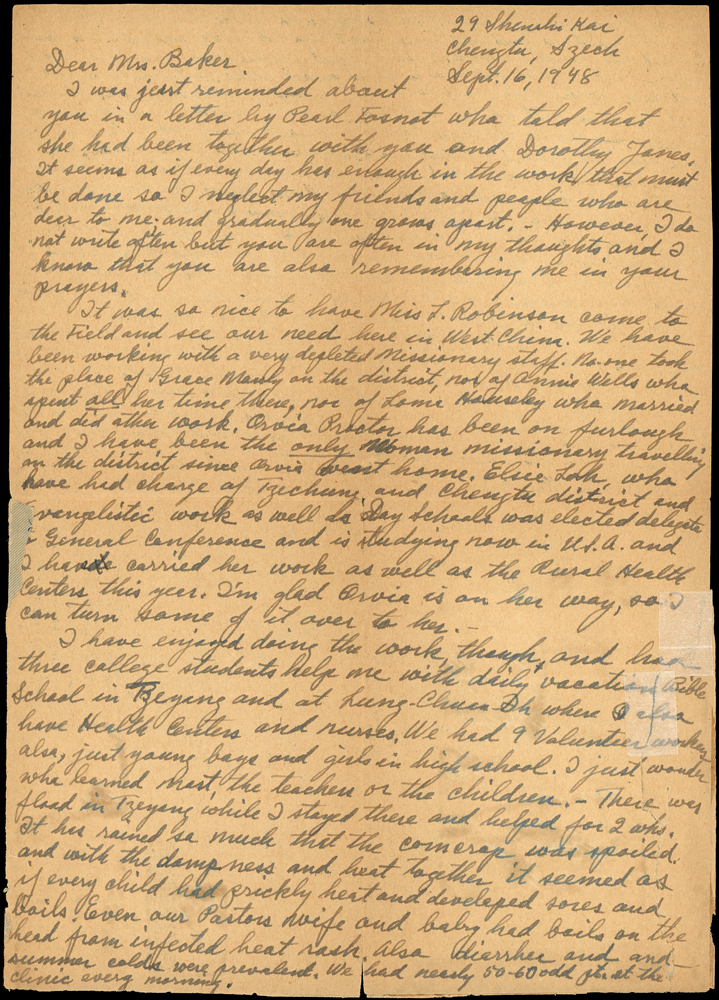 29 Shenshi Kai
Chengtu, Szech
Sept. 16, 1948
Dear Mrs. Baker
I was just reminded about
you in a letter by Pearl Fosnot who told that
she had been together with you and Dorothy Jones.
It seems as if every day has enough in the work that must
be done so I neglect my friends and people who are
dear to me and gradually one grows apart. - However, I do
not write often but you are often in my thoughts and I
know that you are also remembering me in your
prayers.
It was so nice to have Miss L. Robinson come to
the Field and see our need here in West China. We have
been working with a very depleted Missionary staff. No-one took
the place of Grace Manly on the district, nor of Annie Wells who
spent all her time there, nor of Loma Houseley who married
and did other work. Orvia Proctor has been on furlough
and I have been the only Woman missionary travelling
on the district since Orvia went home. Elsie Loh, who
have had charge of Tzechung and Chengtu district and
Evangelistic work as well as Day Schools was elected delegate
to General Conference and is studying now in U.S.A. and
I have carried her work as well as the Rural Health
Centers this year. I'm glad Orvia is on her way, so I
can turn some of it over to her. -
I have enjoyd doing the work, though, and had
three college students help me with daily vacation Bible
School in Tzeyang and at Lung-Chuan Ih where I also
have Health Centers and nurses. We had 9 Volunteer workers
also, just young boys and girls in high school. I just wonder
who learned most the teachers or the children. - There was
flood in Tzeyang while I stayed there and helped for 2 wks.
It has rained so much that the corncrop was spoiled.
and with the dampness and heat together it seemed as
if every child had prickly heat and developed sores and
boils. Even our Pastors wife and baby had boils on the
head from infected heat rash. Also diarrhea and and
summer colds were prevalent. We had nearly 50-60 odd pt. at the
clinic every morning.